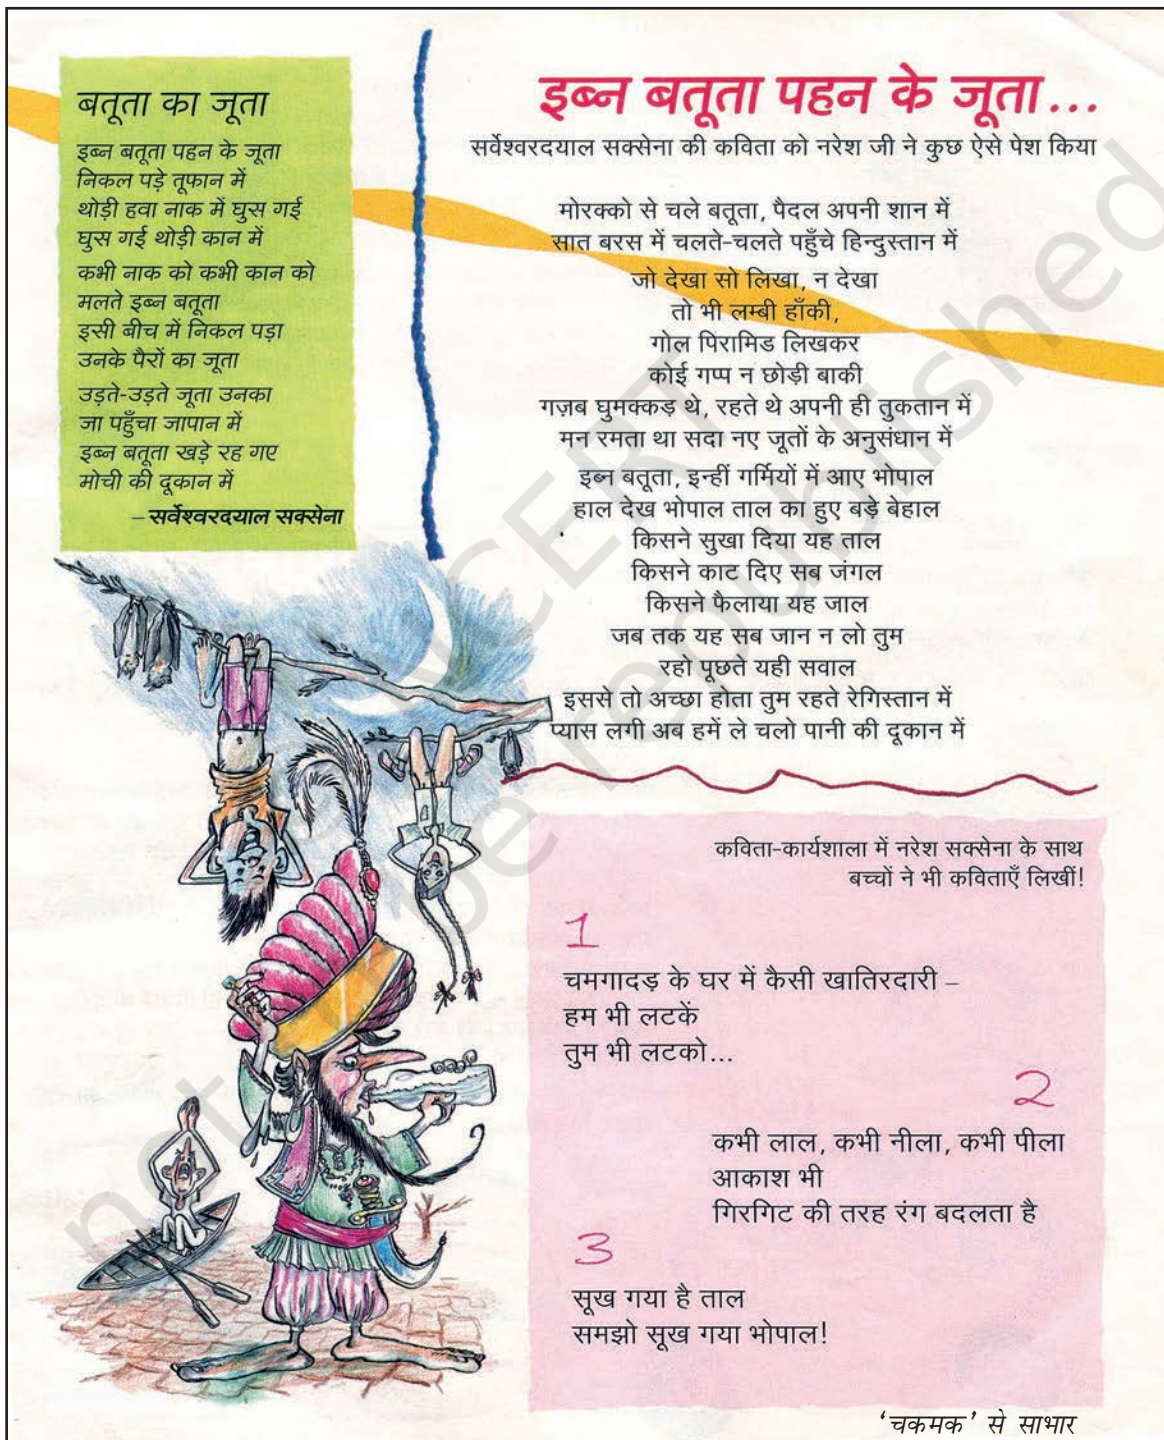 बतूता का जूता
इब्न बतूता पहन के जूता
निकल पड़े तूफान में
थोड़ी हवा नाक में घुस गई
घुस गई थोड़ी कान में
कभी नाक को कभी कान को
मलते इब्न बतूता
इसी बीच में निकल पड़ा
उनके पैरों का जूता
उड़ते-उड़ते जूता उनका
जा पहुँचा जापान में
इब्न बतूता खड़े रह गए
मोची की दूकान में
–सर्वेश्वरदयाल सक्सेना
इब्न बतूता पहन के जूता...
सर्वेश्वरदयाल सक्सेना की कविता को नरेश जी ने कुछ ऐसे पेश किया
मोरक्को से चले बतूता, पैदल अपनी शान में
सात बरस में चलते-चलते पहुँचे हिन्दुस्तान में
जो देखा सो लिखा, न देखा
तो भी लम्बी हाँकी,
गोल पिरामिड लिखकर
कोई गप्प न छोड़ी बाकी
गज़ब घुमक्कड़ थे, रहते थे अपनी ही तुकतान में
मन रमता था सदा नए जूतों के अनुसंधान में
इब्न बतूता, इन्हीं गर्मियों में आए भोपाल
हाल देख भोपाल ताल का हुए बड़े बेहाल
किसने सुखा दिया यह ताल
किसने काट दिए सब जंगल
किसने फैलाया यह जाल
जब तक यह सब जान न लो तुम
रहो पूछते यही सवाल
इससे तो अच्छा होता तुम रहते रेगिस्तान में
प्यास लगी अब हमें ले चलो पानी की दूकान में
कविता-कार्यशाला में नरेश सक्सेना के साथ
बच्चों ने भी कविताएँ लिखीं!
1
चमगादड़ के घर में कैसी खातिरदारी –
हम भी लटकें
तुम भी लटको...
2
कभी लाल, कभी नीला, कभी पीला
आकाश भी
गिरगिट की तरह रंग बदलता है
3
सूख गया है ताल
समझो सूख गया भोपाल!
'चकमक' से साभार
© NCERT
not to be republished